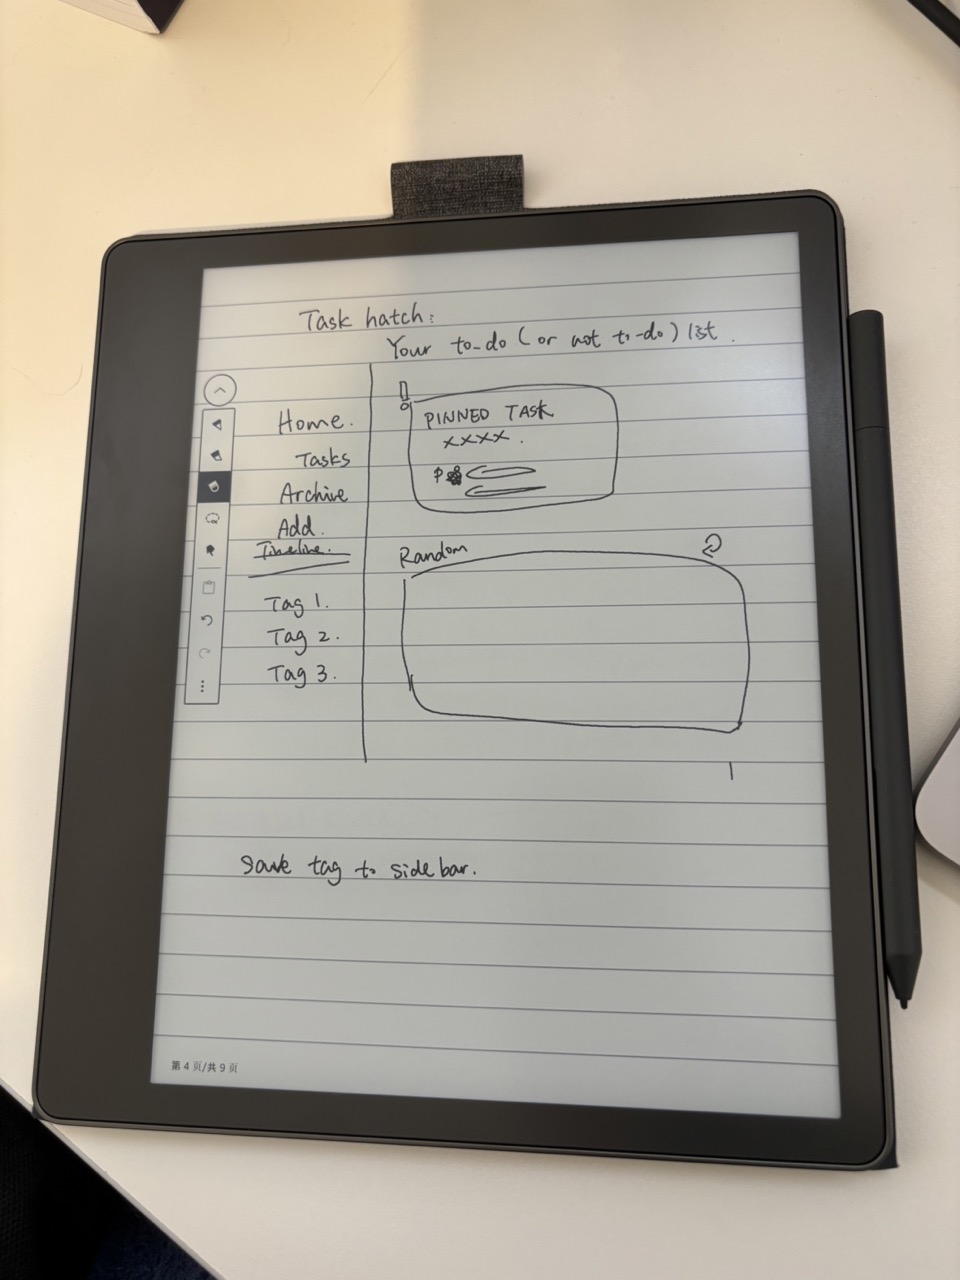 Task hatch:
Your to-do (or not to-do) list.
Home.
Tasks
Archive
Add.
Timeline.
Tag 1.
Tag 2.
Tag 3.
PINNED TASK
xxxx.
Random
Save tag to sidebar.
第 4 页/共 9 页